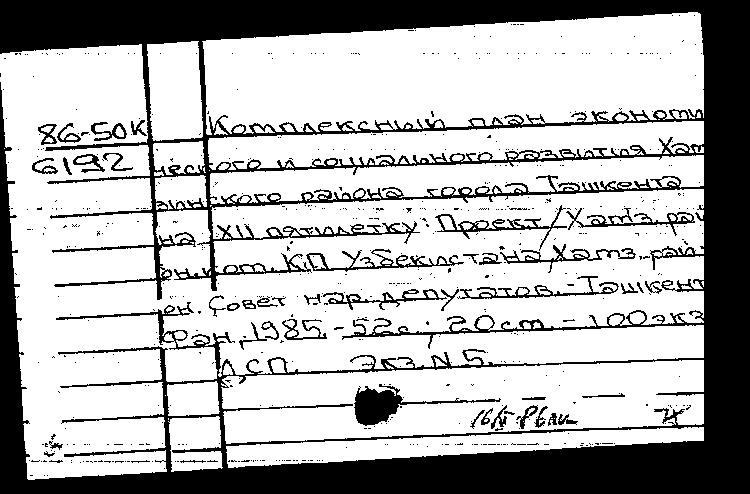 86-50К Комплексный план экономи
6192 ческого и социального развития Хам
зинского района города Ташкента
на XII пятилетку: Проект / Хамз. рай
он. ком. КП Узбекистана, Хамз. рай
он. Совет нар. депутатов. - Ташкент
Фан, 1985. - 52с.; 20см. - 100экз
ДСП. Экз. N 5.